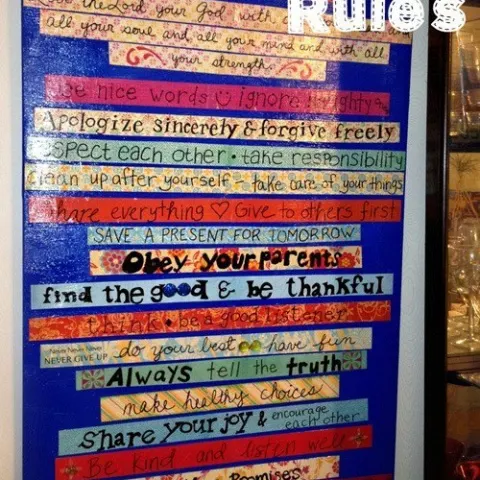 Rules
Love the Lord your God with
all your soul and all your mind and with all
your strength.
Be nice words ignore naughty
Apologize sincerely & forgive freely
spect each other • take responsibility
Clean up after yourself - take care of your things
Share everything ♡ Give to others first
SAVE A PRESENT FOR TOMORROW
Obey your parents
find the good & be thankful
think • be a good listener
Never Never Never
NEVER GIVE UP do your best have fun
Always tell the truth
make healthy choices
Share your joy & encourage each other
Be Kind and listen well
Promises